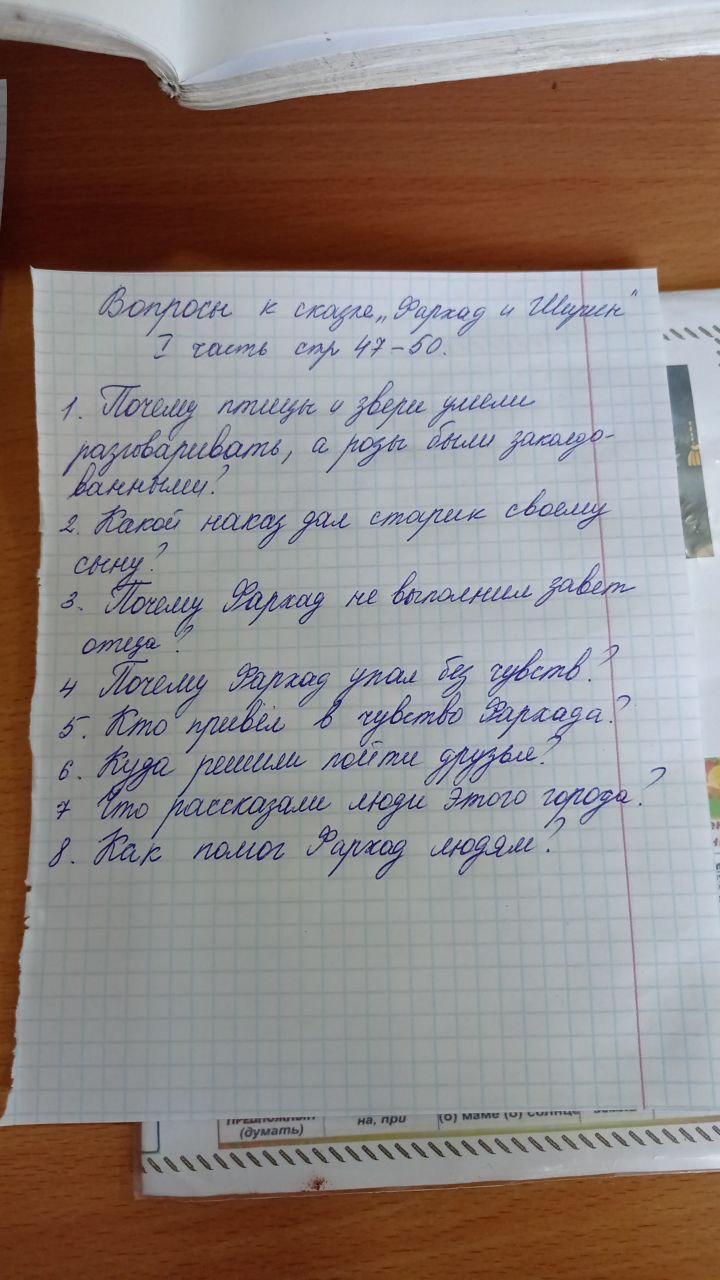 Вопросы к сказке „Фархад и Ширин"
I часть стр 47-50.
1. Почему птицы и звери умели
разговаривать, а розы были заколдо-
ванными?
2. Какой наказ дал старик своему
сыну?
3. Почему Фархад не выполнил завет
отца?
4 Почему Фархад упал без чувств?
5. Кто привёл в чувство Фархада?
6. Куда решили пойти друзья?
7 Что рассказали люди этого города?
8. Как помог Фархад людям?
(думать)
на, при
(о) маме (о) солнце